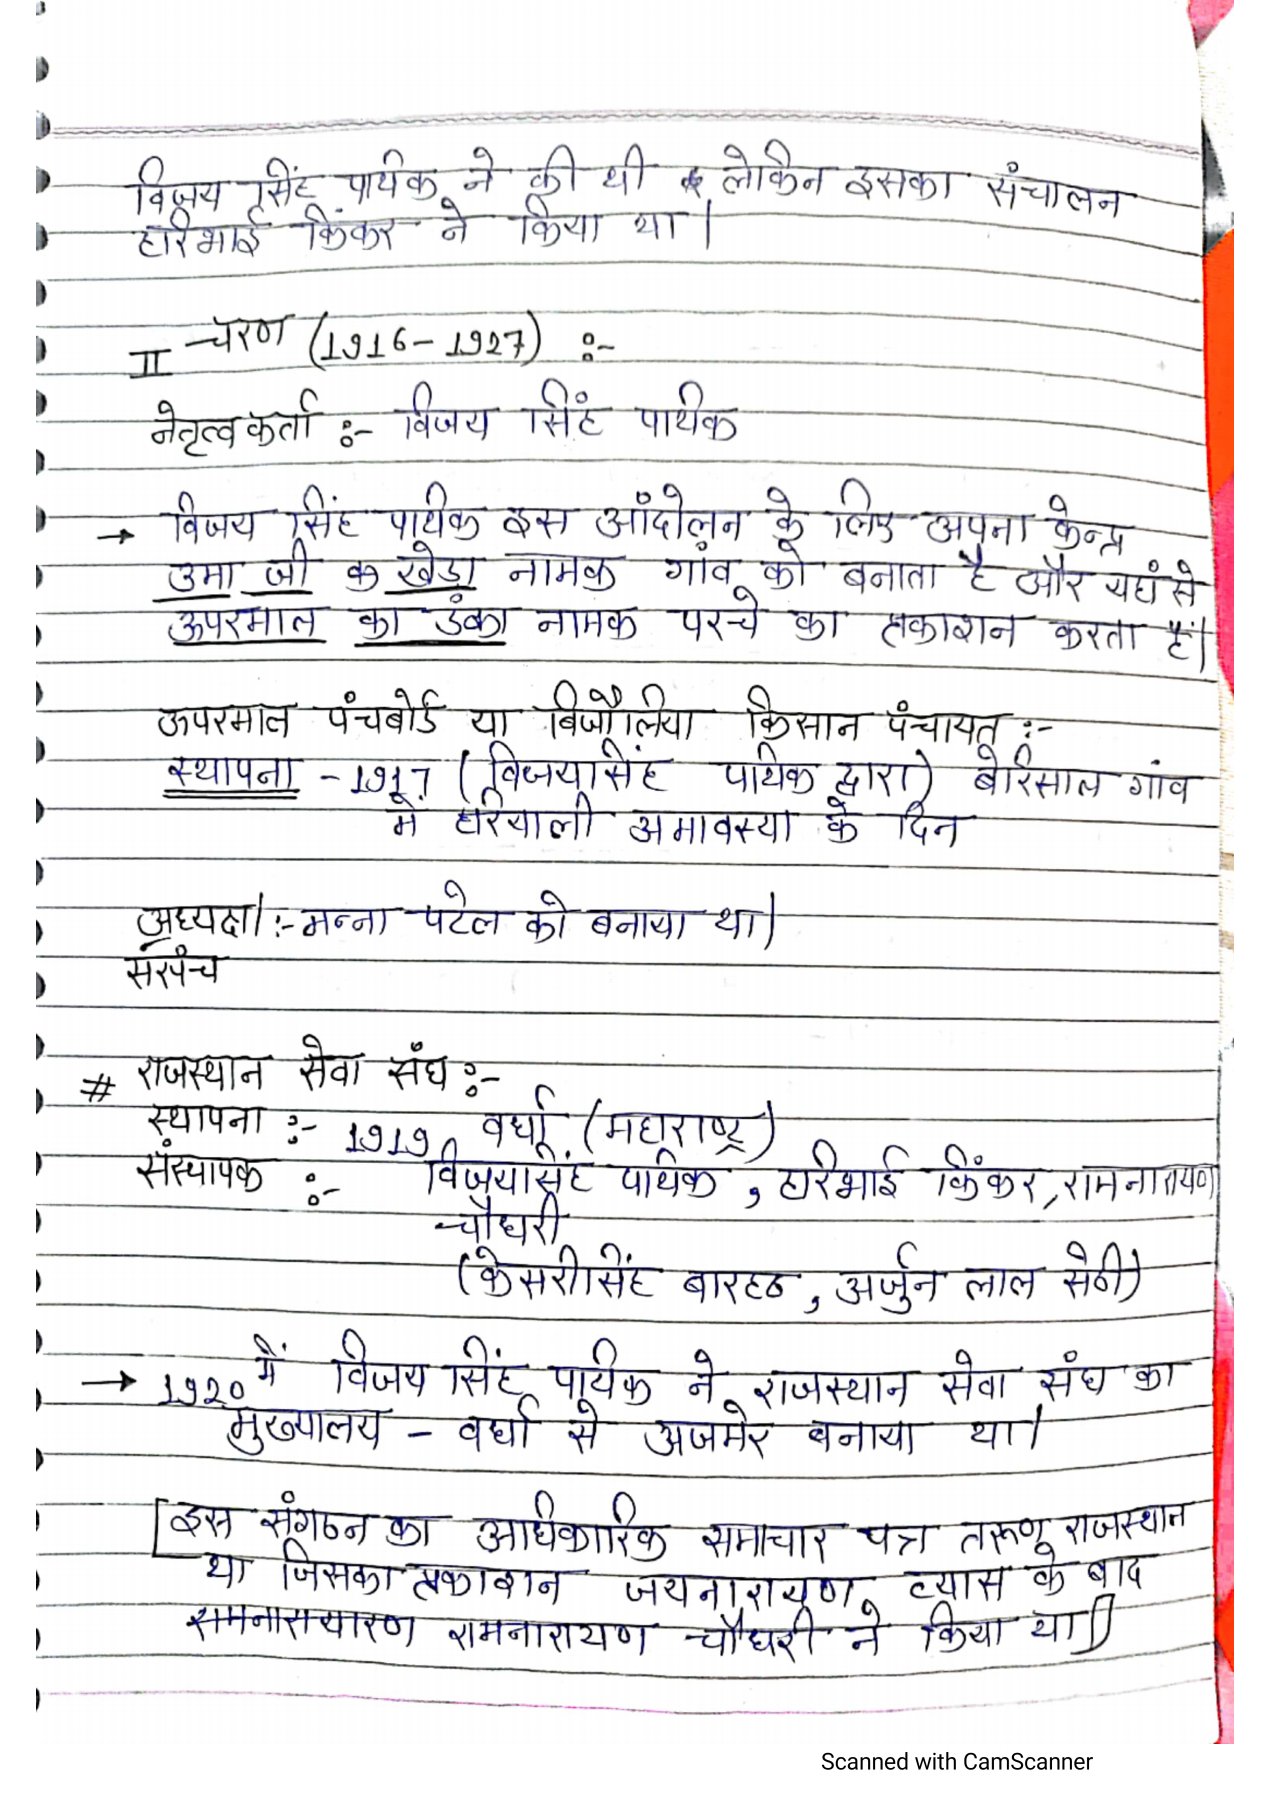 विजय सिंह पथिक ने की थी लेकिन इसका संचालन
हरिभाई किंकर ने किया था|
II चरण (1916-1927) :-
नेतृत्वकर्ता :- विजय सिंह पथिक
→ विजय सिंह पथिक इस आंदोलन के लिए अपना केन्द्र
उमा जी क खेड़ा नामक गांव को बनाता है और यहां से
ऊपरमाल का डंका नामक परचे का प्रकाशन करता है|
ऊपरमाल पंचबोर्ड या बिजौलिया किसान पंचायत :-
स्थापना - 1917 (विजयसिंह पथिक द्वारा) बेरिसाल गांव
में हरियाली अमावस्या के दिन
अध्यक्ष :- मन्ना पटेल को बनाया था|
सरपंच
# राजस्थान सेवा संघ :-
स्थापना :- 1919 वर्धा (महाराष्ट्र)
संस्थापक :- विजयसिंह पथिक, हरिभाई किंकर, रामनारायण
चौधरी
(केसरीसिंह बारहठ, अर्जुन लाल सेठी)
→ 1920 में विजय सिंह पथिक ने राजस्थान सेवा संघ का
मुख्यालय - वर्धा से अजमेर बनाया था|
[इस संगठन का आधिकारिक समाचार पत्र तरूण राजस्थान
था जिसका प्रकाशन जयनारायण व्यास के बाद
रामनारायण चौधरी ने किया था|]
Scanned with CamScanner